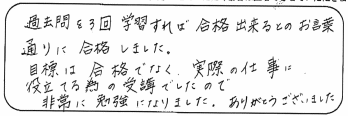 過去問を3回学習すれば合格出来るとのお言葉
通りに合格しました。
目標は合格でなく、実際の仕事に
役立てる為の受講でしたので
非常に勉強になりました。ありがとうございました